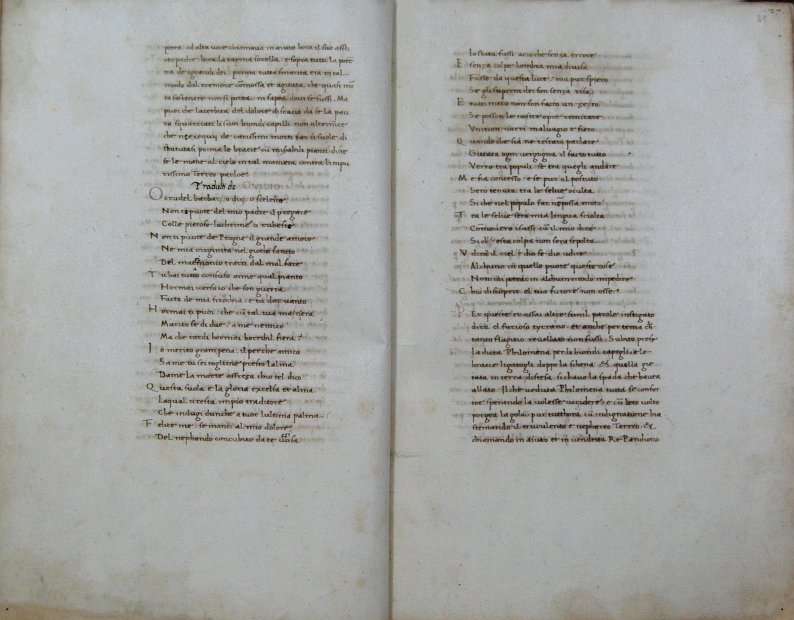 potea ad alta voce chiamava in aiuto hora il suo affli
to padre, hora la tapina sorella, e sopra tutti la pote
na de igrandi dei prima tutta smarrita era in tal
modo dal tremore comossa et agitata che quasi
ta sostenere non si potea, ni sapea dove se fussi. Ma
poi che lacerbità del dolore discaciò da se la pau
ra squarciati li suoi biondi capilli non altramente
che ne exequii de carissimi morti far si suole di
sbatutasi prima le bracie cum misabili pianti, diste
se le mane al cielo in tal maniera contra limpu
rissimo Terreo parloe.
Tradutti de OVIDIO
O crudel barbar, o dir, o scelesto
Non te puote del mio padre il pregare
Colle pietose lachrime o rubesto
N on ti puote de Progne il grande amore
Ne mia virginita nel gusto sancto
Del matrimonio trarti dal mal fare
T u hai tutto confuso oime qual pianto
Hormai verso vo che son guerra
Facta de mia sirochia, e tu dir vanto
H ormai ti puoi, che cu tal tua maniera
Marito se di due, a me nemico
Ma che tardi hormai horribil fiera?
I o merito gran pena, il perche amico
Sa me tu sei toglime presto lalma
Dame la morte affrega chio tel dico
Q uesta fiola e la gloria excelsa et alma
Laqual ti resta impio traditore
Che indugi dunche a tuor lultima palma
F elice me, se inanci al mio dolore
Del nephando concubito da te uccisa
lo stata fussi acio che senza errore
E senza colpe lombra mia divisa
Fusse da questa luce, ma pur spiero
Se gli superni dei son senza risa
E tutti meco non son facto un zero
Se posson le nostre opre temerate
Vnitum farti malvagio e fiero
Q uando che sia ne restaro parlare
Gittata ogni vergogna il facto tutto
Verro tra populi se tra quegli andare
M e fia concesto, e se pur al postuto
Sero tenuta tra le selve oculta
Si che nel populo far ne possa moto
T ra le selve sera mia lingua sciolta
Comovero i sassi cu il mio dire
Si di, esta colpa non sera sepolta
V dira il ciel e dio se dio udire
Alchuno in quello puote queste cose
Non mi potrai in alchun modo impedire
C hio discoprire el tuo furore non osse.
P Er queste et assai altre simil parole instigato
dira el furioso tyrano, et anche per tema di
tanto flagitio revellato non fussi. Subito prese
la dicta Philomena per li biondi capegli, e le
bracie ligatogli doppo la schena, et quella gie
tata in terra distesa, sichavo la spada che havea
allato. Il che veduta Philomena tutta se confor
toe sperando la volesse uccidere, e cu lieto volto
porgea la gola, pur tutthora cu indignatione bia
stemando il truculento e nephario Terreo. Et
chiamando in aiuto et in vendetta Re Pandion